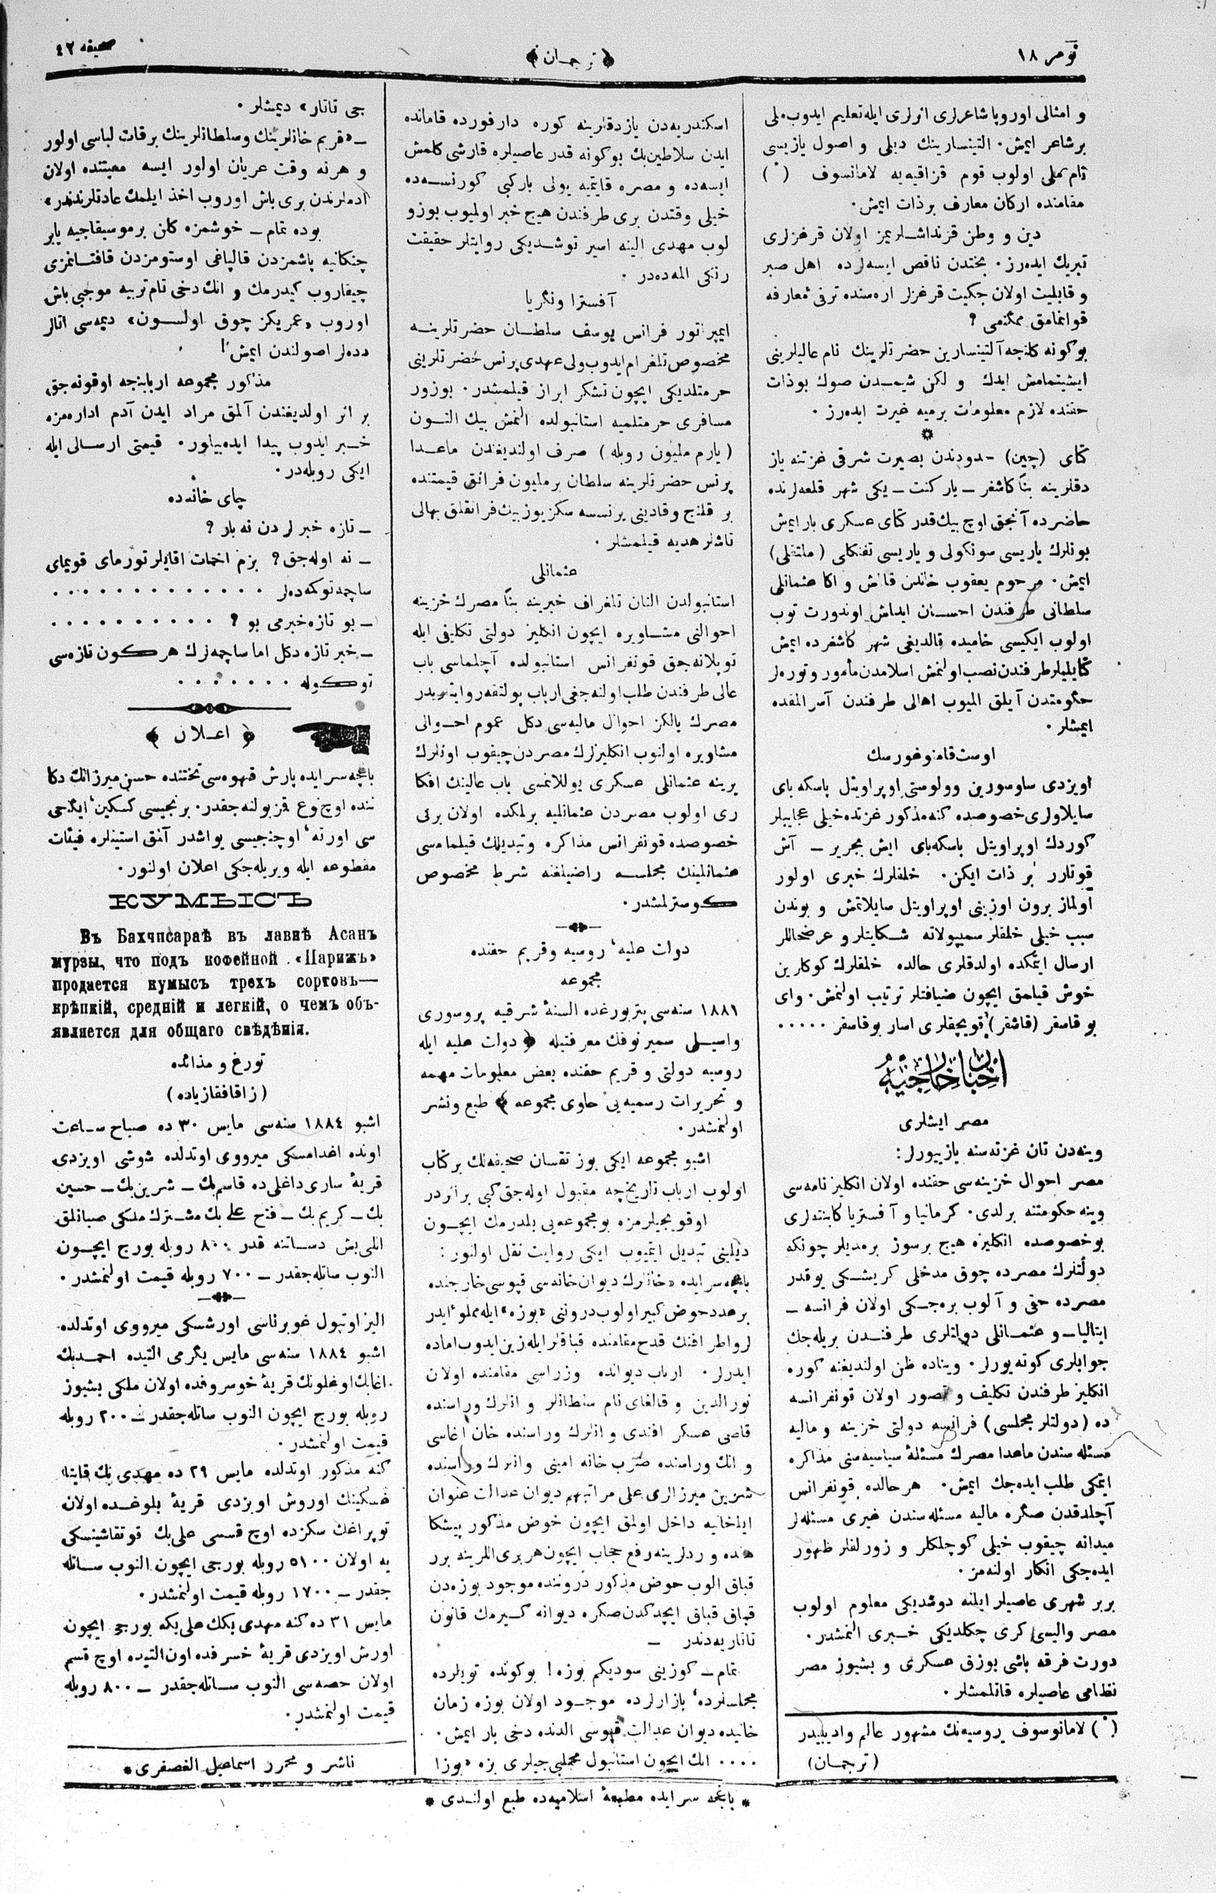 نومر ١٨
﴿ ترجمان ﴾
صحیفه ٤٢
و امثالی اوروپا شاعرلری اثرلری ایله تعلیم ایدوب ملی
بر شاعر ایمش. التینسارینك دیلی و اصول یازیسی
تام ملی اولوب قوم قزاقیه‌یه لامانوسوف (*)
مقامنده ارکان معارف بر ذات ایمش.
دین و وطن قرنداشلریمز اولان قرغزلری
تبریك ایده‌رز. بختدن ناقص ایسه‌لرده اهل صبر
و قابلیت اولان جکیت قرغزلر اره‌سنده ترقئ معارفه
قوانمامق ممکنمی؟
بوکونه کلنجه آلتینسارین حضرتلرینك نام عالیلرینی
ایشیتمامش ایدك و لکن شیمدن صوك بو ذات
حقنده لازم معلومات برمیه غیرت ایده‌رز.
*
کتای (چین) حدودندن بصیرت شرقی غزتنه یاز
دقلرینه بنأ کاشغر ــ یارکنت ــ یکی شهر قلعه‌لرنده
حاضرده آنجق اوچ بیك قدر کتای عسکری بار ایمش
بونلرك یاریسی سونکولی و یاریسی تفنکلی (ملتقلی)
ایمش. مرحوم یعقوب خاندن قالمش و اکا عثمانلی
سلطانی طرفندن احسان ایدلمش اوندورت توپ
اولوب ایکیسی خامیده قالدیغی شهر کاشغرده ایمش
کتایلیلر طرفندن نصب اولنمش اسلامدن مأمور و توره‌لر
حکومتدن آیلق المیوب اهالی طرفندن آسرالمقده
ایمشلر.
اوست قامنوغورسك
اویزدی ساوسورین وولوستی اوپراویتل باسکه بای
سایلاولری خصوصده کنه مذکور غزتده خیلی عجایبلر
کوردك اوپراویتل باسکه بای ایش بجریر ــ آش
قوتارر بر ذات ایکن. خلقلرك خبری اولور
اولماز برون اوزینی اوپراویتل سایلاتمش و بوندن
سبب خیلی خلقلر سمیپولاته شکایتلر و عرضحاللر
ارسال ایتمکده اولدقلری حالده خلقلرك کوکارین
خوش قیلمق ایچون ضیافتلر ترتیب اولنمش. وای
بو قاسقر (قاشقر) قویچقلری اسار بو قاسقر .....
اخبار خارجیه
مصر ایشلری
وینه‌دن تان غزته‌سنه یازیورلر:
مصر احوال خزینه‌سی حقنده اولان انکلیز نامه‌سی
وینه حکومتنه برلدی. کرمانیا و آفستریا کابنتلری
بو خصوصده انکلیزه هیچ بر سوز برمدیلر چونکه
دولتلرك مصرده چوق مدخلی کریشکی یوقدر
مصرده حقی و آلوب بره‌جکی اولان فرانسه ــ
ایتالیا ــ و عثمانلی دولتلری طرفندن بریله‌جك
جوابلری کوته یورلر. ویناده ظن اولندیغنه کوره
انکلیز طرفندن تکلیف و تصور اولان قونفرانسه
ده (دولتلر مجلسی) فرانسه دولتی خزینه و مالیه
مسئله‌سندن ماعدا مصرك مسئلۀ سیاسیه‌سنی مذاکره
ایتمکی طلب ایده‌جك ایمش. هر حالده قونفرانس
آچلدقدن صکره مالیه مسئله‌سندن غیری مسئله‌لر
میدانه چیقوب خیلی کوچلکلر و زورلقلر ظهور
ایده‌جکی انکار اولنه‌مز.
بربر شهری عاصیلر ایلنه دوشدیکی معلوم اولوب
مصر والیسی کری چکلدیکی خبری النمشدر.
دورت فرقه باشی بوزق عسکری و بشیوز مصر
نظامی عاصیلره قاتلمشلر.
(*) لامانوسوف روسیه‌نك مشهور عالم و ادیبیدر
(ترجمان)
اسکندریه‌دن یازدقلرینه کوره دارفورده قامانده
ایدن سلاطین بك بوکونه قدر عاصیلره قارشی کلمش
ایسه‌ده و مصره قایتمیه یولی بارکبی کورنسه‌ده
خیلی وقتدن بری طرفندن هیچ خبر اولمیوب بوزو
لوب مهدی الینه اسیر توشدیکی روایتلر حقیقت
رنکی المه‌ده‌در.
آفسترا ونگریا
ایمپراتور فرانس یوسف سلطان حضرتلرینه
مخصوص تلغرام ایدوب ولی عهدی پرنس حضرتلرینی
حرمتلدیکی ایچون تشکر ابراز قیلمشدر. بو زور
مسافری حرمتلمیه استانبولده التمش بیك التون
(یارم ملیون روبله) صرف اولندیغندن ماعدا
پرنس حضرتلرینه سلطان بر ملیون فرانق قیمتنده
بر قلنج و قادینی پرنسسه سکز یوز بیك فرانقلق بهالی
تاشلر هدیه قیلمشلر.
عثمانلی
استانبولدن النان تلغراف خبرینه بنأ مصرك خزینه
احوالنی مشاوره ایچون انکلیز دولتی تکلیفی ایله
توپلانه‌جق قونفرانس استانبولده آچلماسی باب
عالی طرفندن طلب اولنه‌جغی ارباب پولتقه روایتیدر
مصرك یالکز احوال مالیه‌سی دکل عموم احوالی
مشاوره اولنوب انکلیزلرك مصردن چیقوب اونلرك
یرینه عثمانلی عسکری یوللانمسی باب عالینك افکا
ری اولوب مصردن عثمانلیه برلمکده اولان برکی
خصوصده قونفرانس مذاکره و تبدیلك قیلمامسی
عثمانلینك مجلسه راضیلغنه شرط مخصوص
کوسترلمشدر.
دولت علیه، روسیه و قریم حقنده
مجموعه
١٨٨١ سنه‌سی پتربورغده السنۀ شرقیه پروسوری
واسیلی سمیرنوفك معرفتیله ﴿ دولت علیه ایله
روسیه دولتی و قریم حقنده بعض معلومات مهمه
و تحریرات رسمیه‌یی حاوی مجموعه ﴾ طبع و نشر
اولنمشدر.
اشبو مجموعه ایکی یوز تقسان صحیفه‌لك بر کتاب
اولوب ارباب تاریخچه مقبول اوله‌جق کبی بر اثردر
اوقوبجیلرمزه بو مجموعه‌یی بلدرمك ایچون
دیلینی تبدیل ایتمیوب ایکی روایت نقل اولنور:
باغچه‌سرایده «خانلرك دیوان خانه‌سی قپوسی خارجنده
بر عدد حوض کبیر اولوب درونی «بوزه» ایله مملو ایدر
لر و اطرافنك قدح مقامنده قباقلر ایله زین ایدوب اماده
ایدرلر. ارباب دیوانده وزراسی مقامنده اولان
نورالدین و قالغای نام سلطانلر و انلرك وراسنده
قاضی عسکر افندی و انلرك وراسنده خان اغاسی
و انك وراسنده ضرب خانه امینی و انلرك وراسنده
شرین میرزالری علی مراتبهم دیوان عدالت عنوان
ایلخانیه داخل اولمق ایچون حوض مذکور پیشکا
هنده و ردلرینه رفع حجاب ایچون هر بری اللرینه برر
قباق الوب حوض مذکور دروننده موجود بوزه‌دن
قباق قباق ایچدکدن صکره دیوانه کیرمك قانون
تاتاریه‌دندر ــ
تمام ــ کوزینی سودیکم بوزه! بوکونده تویلرده
مجلسلرده، بازارلرده موجود اولان بوزه زمان
خانیده دیوان عدالت قپوسی الدنده دخی بار ایمش.
.... انك ایچون استانبول محملجیلری بزه «بوزا
جی تاتار» دیمشلر.
ــ «قریم خانلرینك و سلطانلرینك بر قات لباسی اولور
و هر نه وقت عریان اولور ایسه معیتنده اولان
ادملرندن بری باش اوروب اخذ ایلمك عادتلرندندر»
بوده تمام ــ خوشمزه کلن بر موسیقاجیه یا بر
چنکانیه باشمزدن قالپاغی اوستومزدن قافتانمزی
چیقاروب کیدرمك و انك دخی تام تربیه موجبی باش
اوروب «عمریکز چوق اولسون» دیمه‌سی اتالر
دده‌لر اصولندن ایمش!
مذکور مجموعه اربابنجه اوقونه‌جق
بر اثر اولدیغندن آلمق مراد ایدن آدم اداره‌مزه
خبر ایدوب پیدا ایده‌بیلور. قیمتی ارسالی ایله
ایکی روبله‌در.
چای خانه‌ده
ــ تازه خبرلردن نه بار؟
ــ نه اوله‌جق؟ بزم اخمات اقایلر تورمای قویمای
ساچمه توکمه‌ده‌لر ............
ــ بو تازه خبرمی بو؟ ..........
ــ خبر تازه دکل اما ساچمه‌نرك هر کون تازه‌سی
توکوله .......
﴿ اعلان ﴾
باغچه‌سرایده پارش قهوه‌سی تختنده حسن میرزانك دکا
ننده اوچ نوع قمز بولنه‌جقدر. برنجیسی کسکین، ایکنجی
سی اورته، اوچنجیسی یواشدر آنق استینلره فیئات
مقطوعه ایله ویریله‌جکی اعلان اولنور.
КУМЫСЪ
Въ Бахчисараѣ въ лавкѣ Асанъ
мурзы, что подъ кофейной «Парижъ»
продается кумысъ трехъ сортовъ—
крѣпкій, средній и легкій, о чемъ объ-
является для общаго свѣдѣнія.
تورغ و مذائده
(زاقافقازیاده)
اشبو ١٨٨٤ سنه‌سی مایس ٣٠ ده صباح ساعت
اونده اغدامسکی میرووی اوتدلده شوشی اویزدی
قریۀ ساری داغلی‌ده قاسم بك ــ شرین بك ــ حسین
بك ــ کریم بك ــ فتح علی بك مشترك ملکی صبانلق
اللی بش دساتنه قدر ٨٠٠ روبله بورج ایچون
النوب ساتله‌جقدر ــ ٧٠٠ روبله قیمت اولنمشدر.
الیزاوتپول غوبرناسی اورشسکی میرووی اوتدلده
اشبو ١٨٨٤ سنه‌سی مایس یکرمی التیده احمد بك
اغابك اوغلونك قریۀ خوسروفده اولان ملکی بشیوز
روبله بورج ایچون النوب ساتله‌جقدر ــ ٢٠٠ روبله
قیمت اولنمشدر.
کنه مذکور اوتدلده مایس ٢٩ ده مهدی بك
اوروش اویزدی قریۀ بلوغده اولان
توپراغك سکزده اوچ قسمی علی بك قوتقاشینسکی
یه اولان ٥١٠٠ روبله بورجی ایچون النوب ساتله
جقدر ــ ١٧٠٠ روبله قیمت اولنمشدر.
مایس ٣١ ده کنه مهدی بکك علی بکه بورجی ایچون
اورش اویزدی قریۀ خسرفده اون التیده اوچ قسم
اولان حصه‌سی النوب ساتله‌جقدر ــ ٨٠٠ روبله
قیمت اولنمشدر.
ناشر و محرر اسماعیل الغصفری*
* باغچه سرایده مطبعۀ اسلامیه‌ده طبع اولندی *